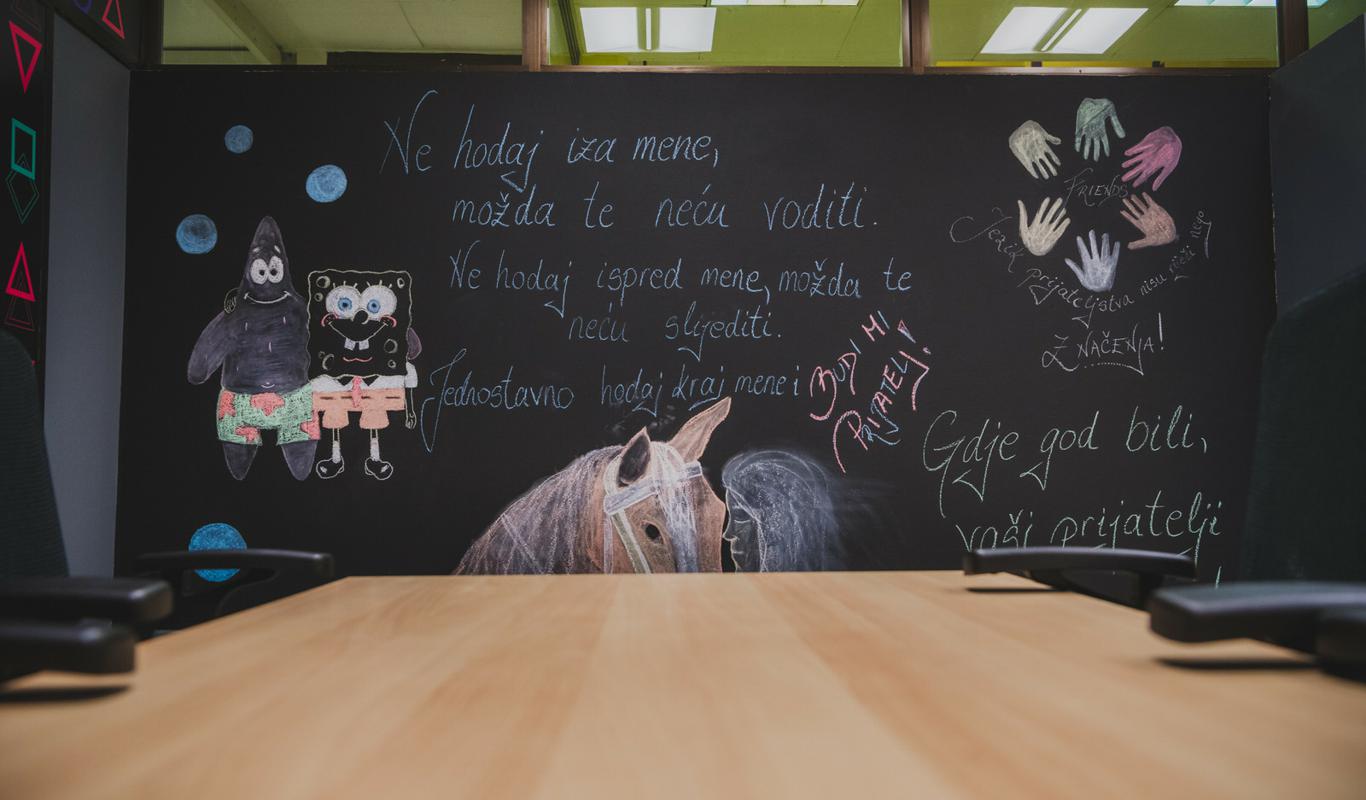 Ne hodaj iza mene,
možda te neću voditi.
Ne hodaj ispred mene, možda te
neću slijediti.
Jednostavno hodaj kraj mene i
BUDI MI
PRIJATELJ!
FRIENDS
Jezik prijateljstva nisu riječi nego
ZNAČENJA!
Gdje god bili,
vaši prijatelji